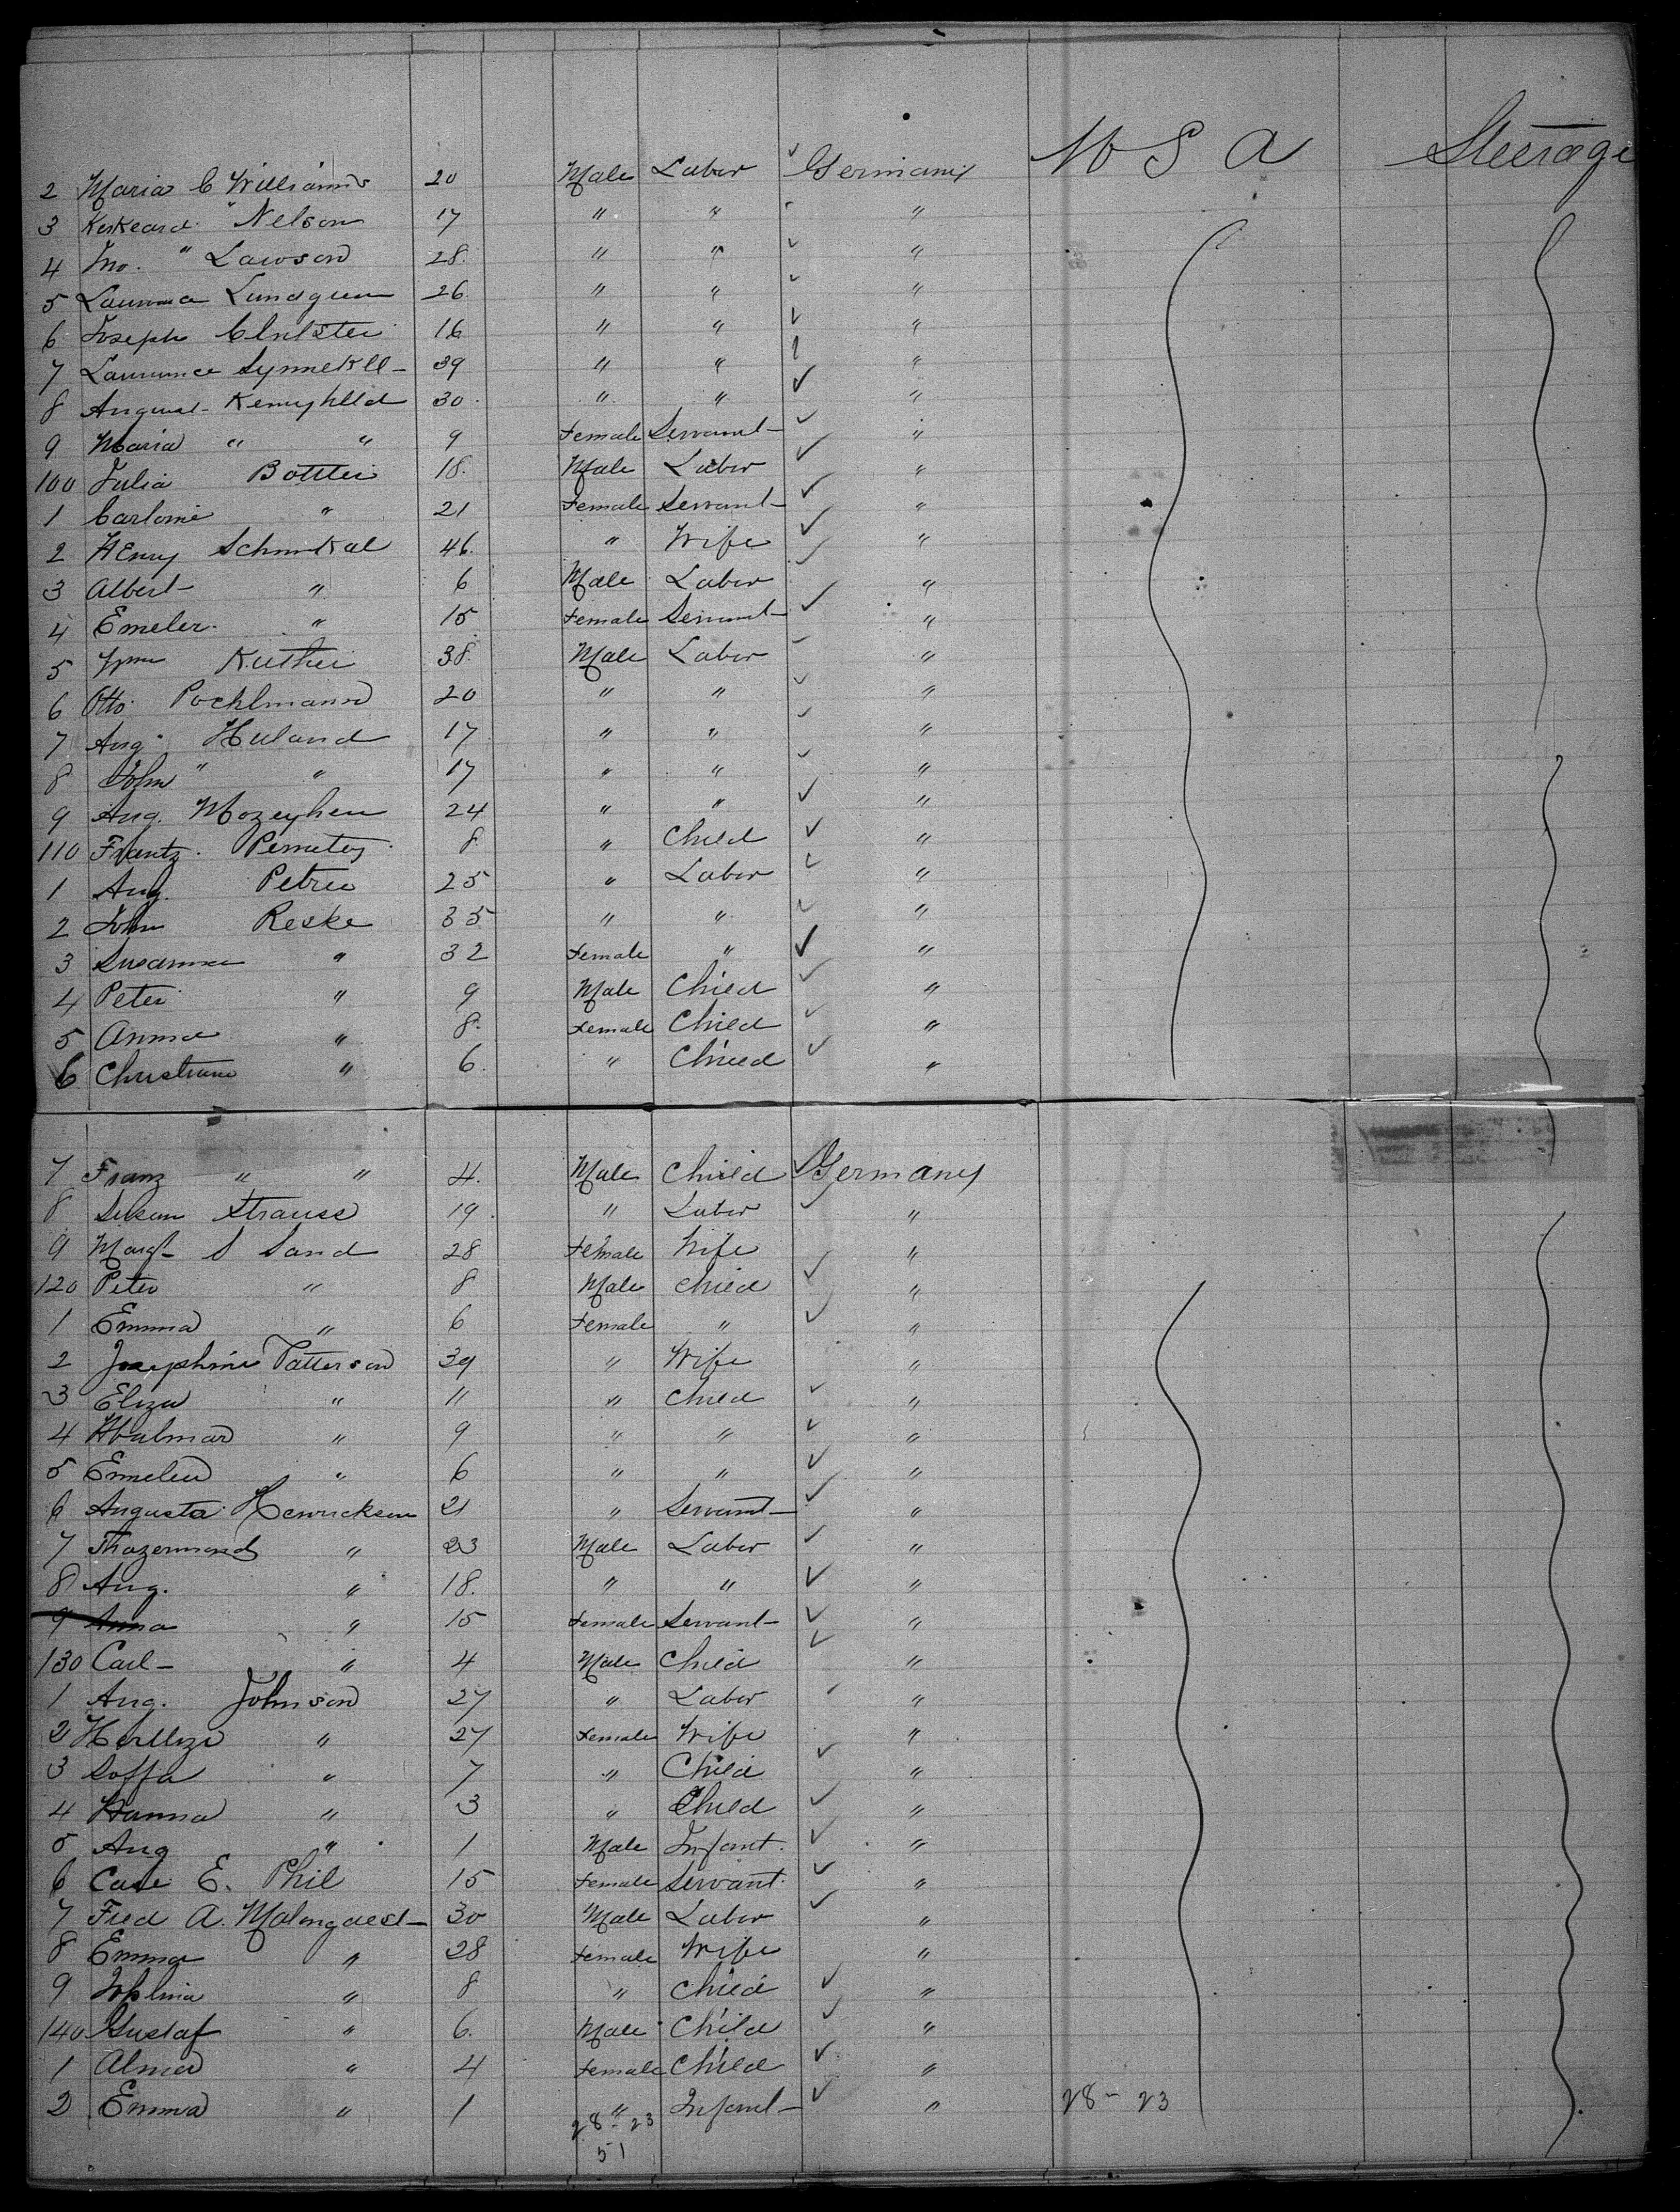 2 Maria C Williams 20 Male Labor Germany U S A Steerage
3 Nelson 17 " " "
4 Jno. " Lawson 28 " " "
5 Lundgren 26 " " "
6 Joseph 16 " " "
7 Laurence 39 " " "
8 30 " " "
9 Maria " " 9 Female Servant "
100 Julia Botttei 18 Male Labor "
1 " 21 Female Servant "
2 Henry 46 " Wife "
3 Albert " 6 Male Labor "
4 Emeler " 15 Female Servant "
5 Wm 38 Male Labor "
6 Otto Pochlmann 20 " " "
7 Aug. Huland 17 " " "
8 John " " 17 " " "
9 Aug. 24 " " "
110 Frantz 8 " Child "
1 Aug. Petree 25 " Labor "
2 John Reske 35 " " "
3 Susanna " 32 Female " "
4 Peter " 9 Male Child "
5 Anna " 8 Female Child "
6 " 6 " Child "
7 Franz " " 4 Male Child Germany
8 Strauss 19 " Labor "
9 Margt S Sand 28 Female Wife "
120 Peter " 8 Male Child "
1 Emma " 6 Female " "
2 Josephine Patterson 39 " Wife "
3 Eliza " 11 " Child "
4 " 9 " " "
5 " 6 " " "
6 Augusta Henrickson 21 " Servant "
7 " 23 Male Labor "
8 Aug. " 18 " " "
9 Anna " 15 Female Servant "
130 Carl " 4 Male Child "
1 Aug. Johnson 27 " Labor "
2 " 27 Female Wife "
3 Soffa " 7 " Child "
4 Hanna " 3 " Child "
5 Aug " 1 Male Infant "
6 E. Phil 15 Female Servant "
7 Fred A. 30 Male Labor "
8 Emma " 28 Female Wife "
9 " 8 " Child "
140 Gustaf " 6 Male Child "
1 Alma " 4 Female Child "
2 Emma " 1 " Infant " 28 - 23
28 - 23
51